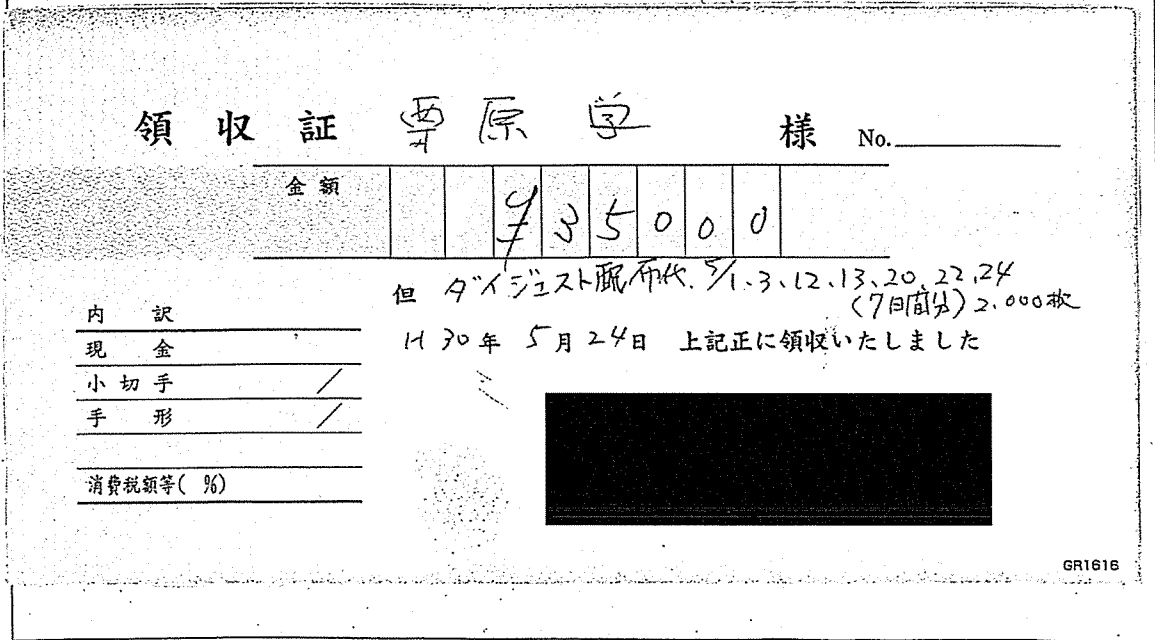 領収証 栗原 学 様 No.
金額 ¥35000
但 ダイジェスト配布代. 5/1.3.12.13.20.22.24
(7日間分) 2.000枚
H30年 5月24日 上記正に領収いたしました
内 訳
現 金
小切手 /
手 形 /
消費税額等( %)
GR1616